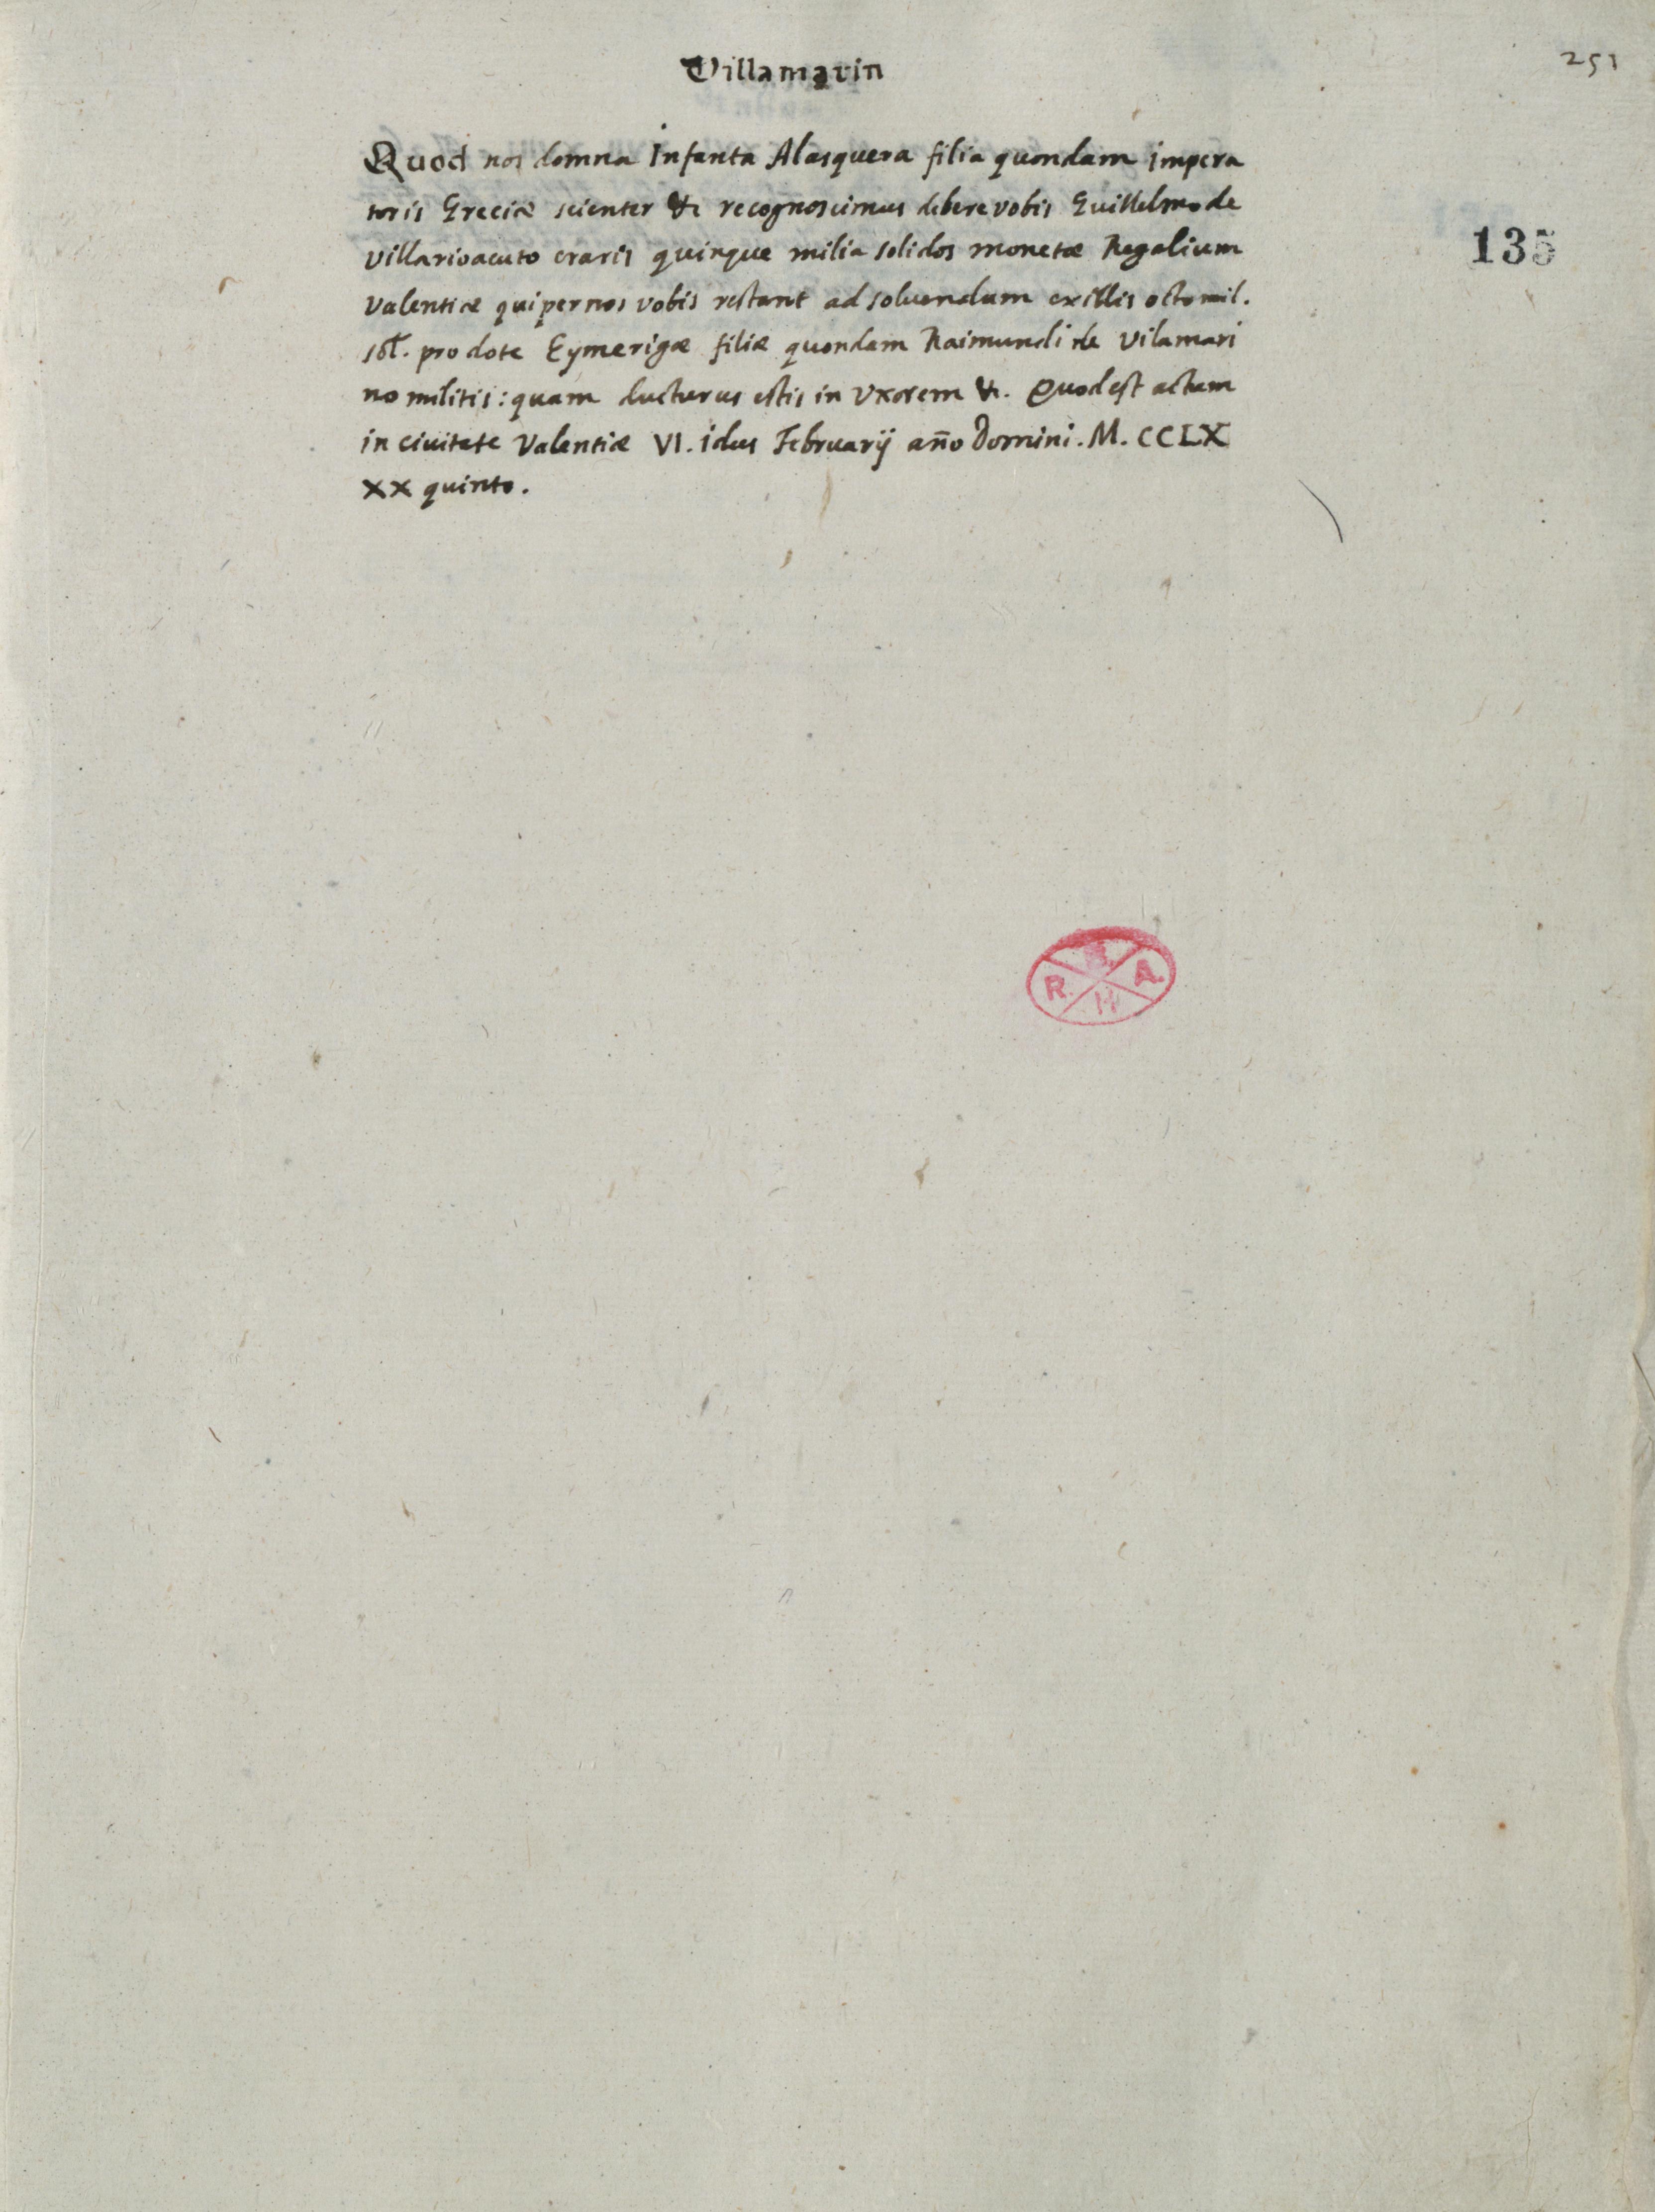 Villamarin
251
Quod nos domna Infanta Alasquera filia quondam impera
toris Greciæ scienter &c recognoscimus debere vobis Guillelmo de
villarioacuto eraris quinque milia solidos monetæ Regalium
Valentiæ qui per nos vobis restant ad soluendum ex illis octo mil.
sol. pro dote Eymerigæ filiæ quondam Raimundi de Vilamari
no militis: quam ducturus estis in vxorem &c. Quod est actum
in ciuitate Valentiæ VI. idus Februarij año Domini. M. CCLX
XX quinto.
135
R. A. H.